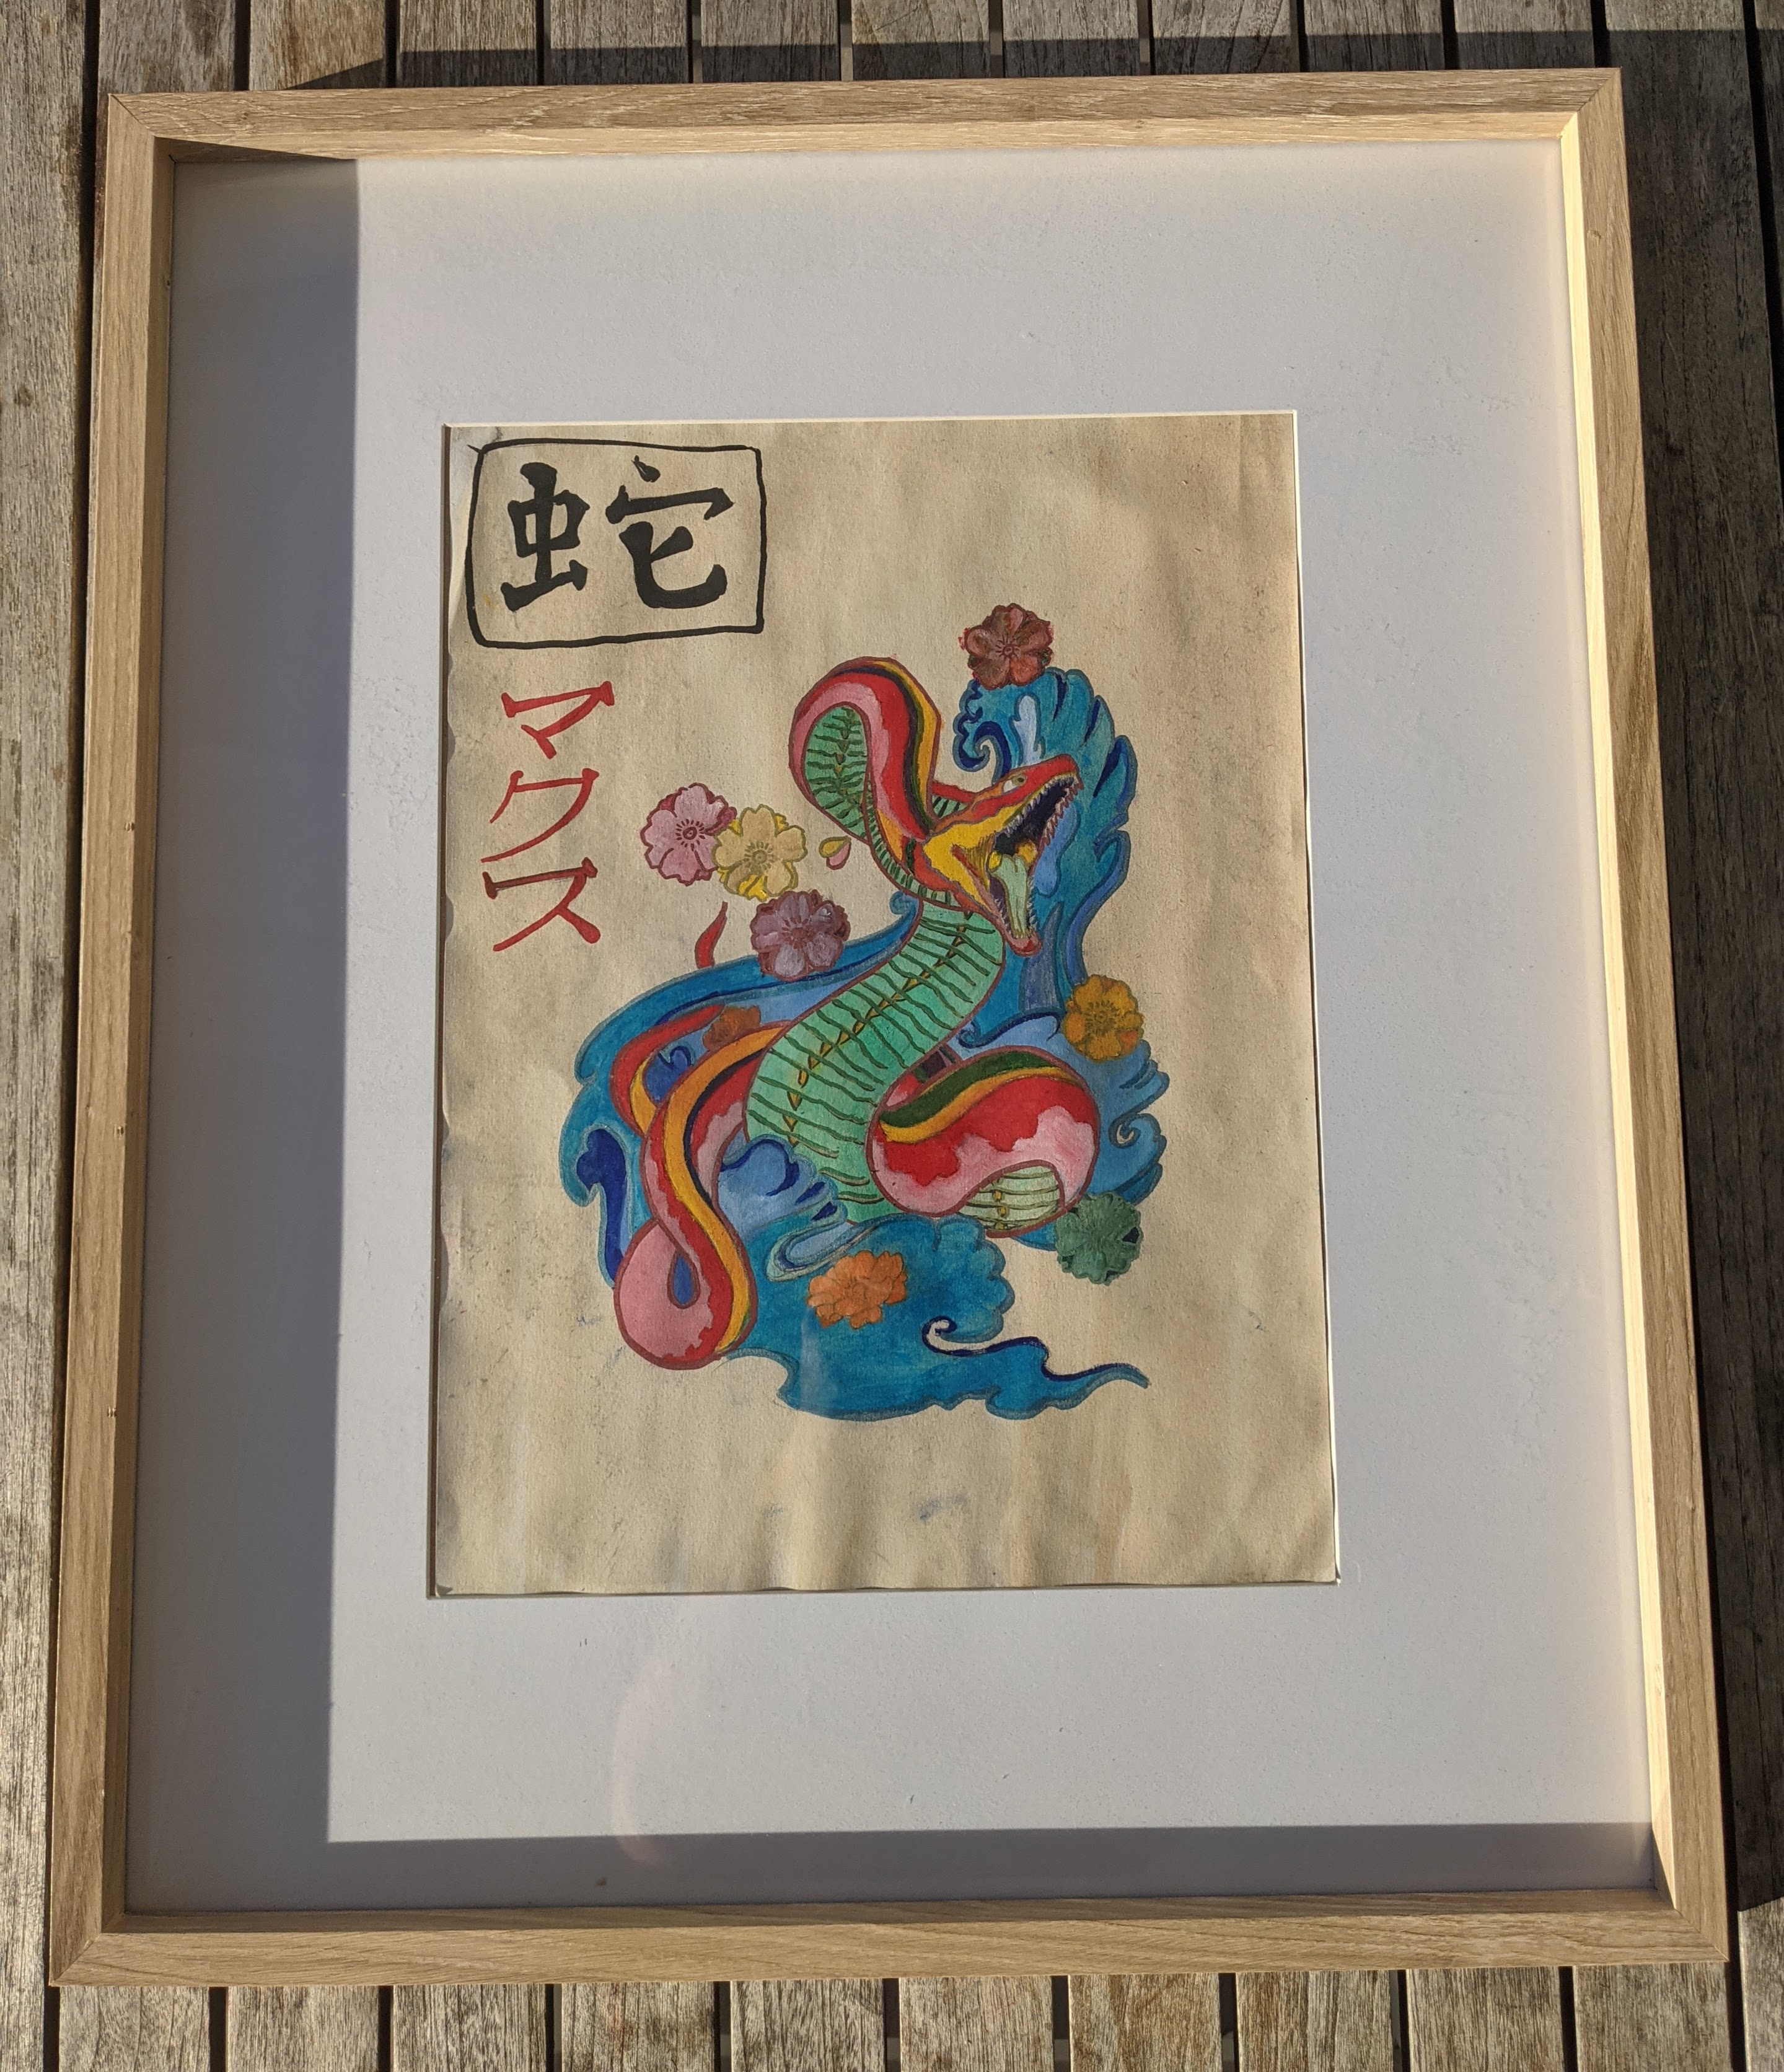 蛇
マクス